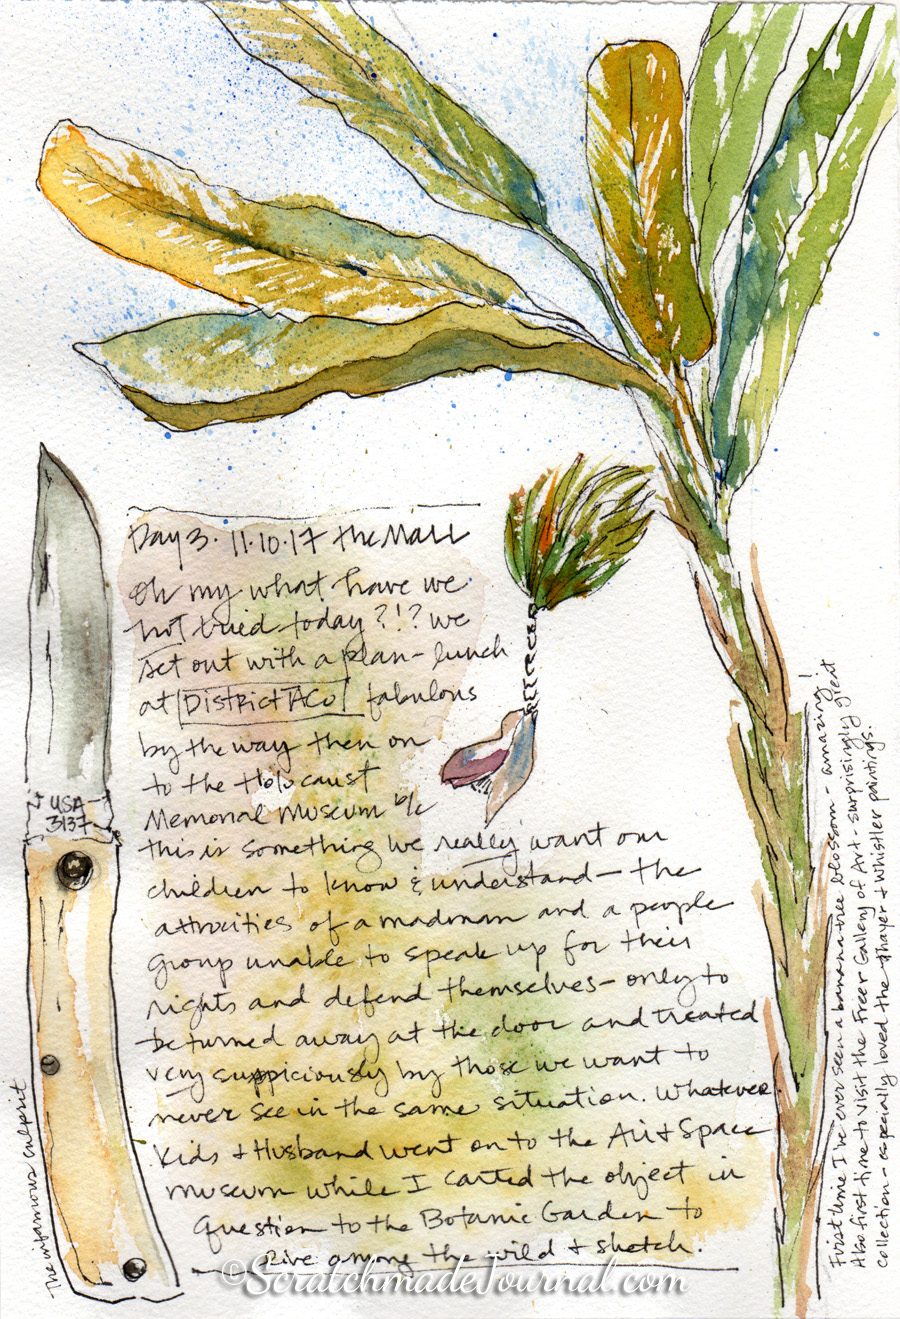 Day 3. 11.10.17 The Mall
Oh my what have we
not tried today?!? We
set out with a plan - lunch
at District Taco fabulous
by the way then on
to the Holocaust
Memorial Museum b/c
this is something we really want our
children to know & understand - the
attrocities of a madman and a people
group unable to speak up for their
rights and defend themselves - only to
be turned away at the door and treated
very suspiciously by those we want to
never see in the same situation. Whatever.
Kids + Husband went on to the Air + Space
Museum while I carted the object in
question to the Botanic Garden to
live among the wild + sketch.
USA
3137
The infamous culprit
First time I've ever seen a banana tree blossom - amazing!
Also first time to visit the Freer Gallery of Art - surprisingly great
collection - especially loved the Thayer + Whistler paintings.
©ScratchmadeJournal.com